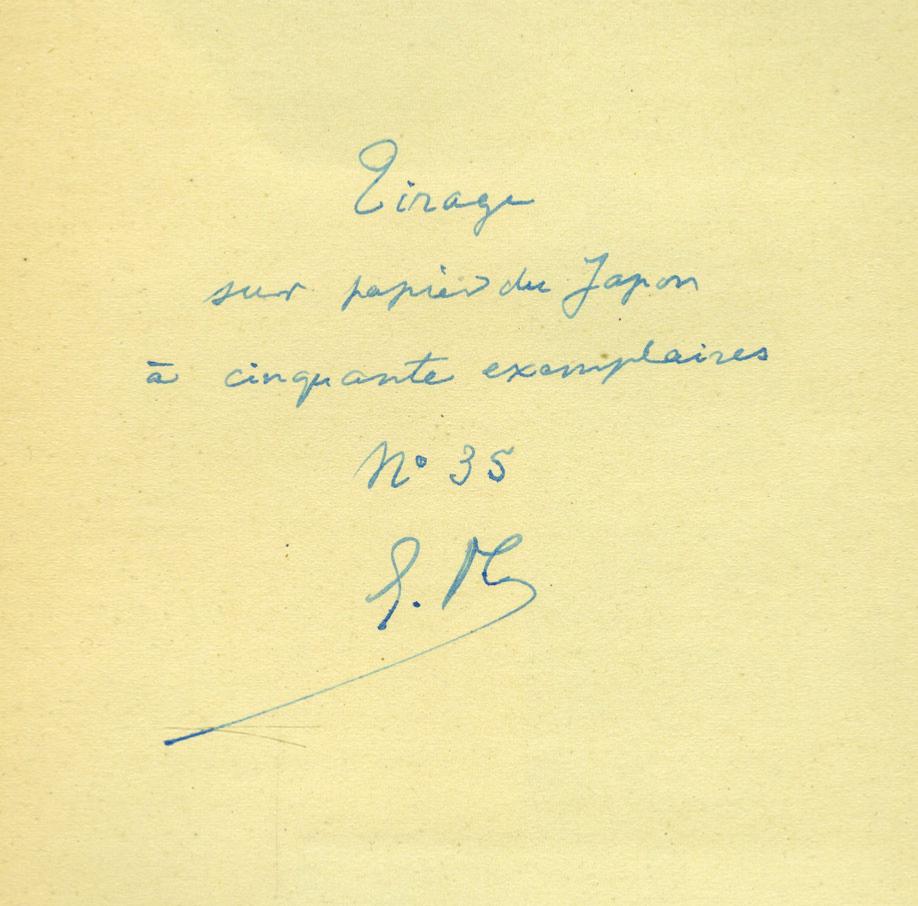 Tirage
sur papier du Japon
à cinquante exemplaires
N° 35